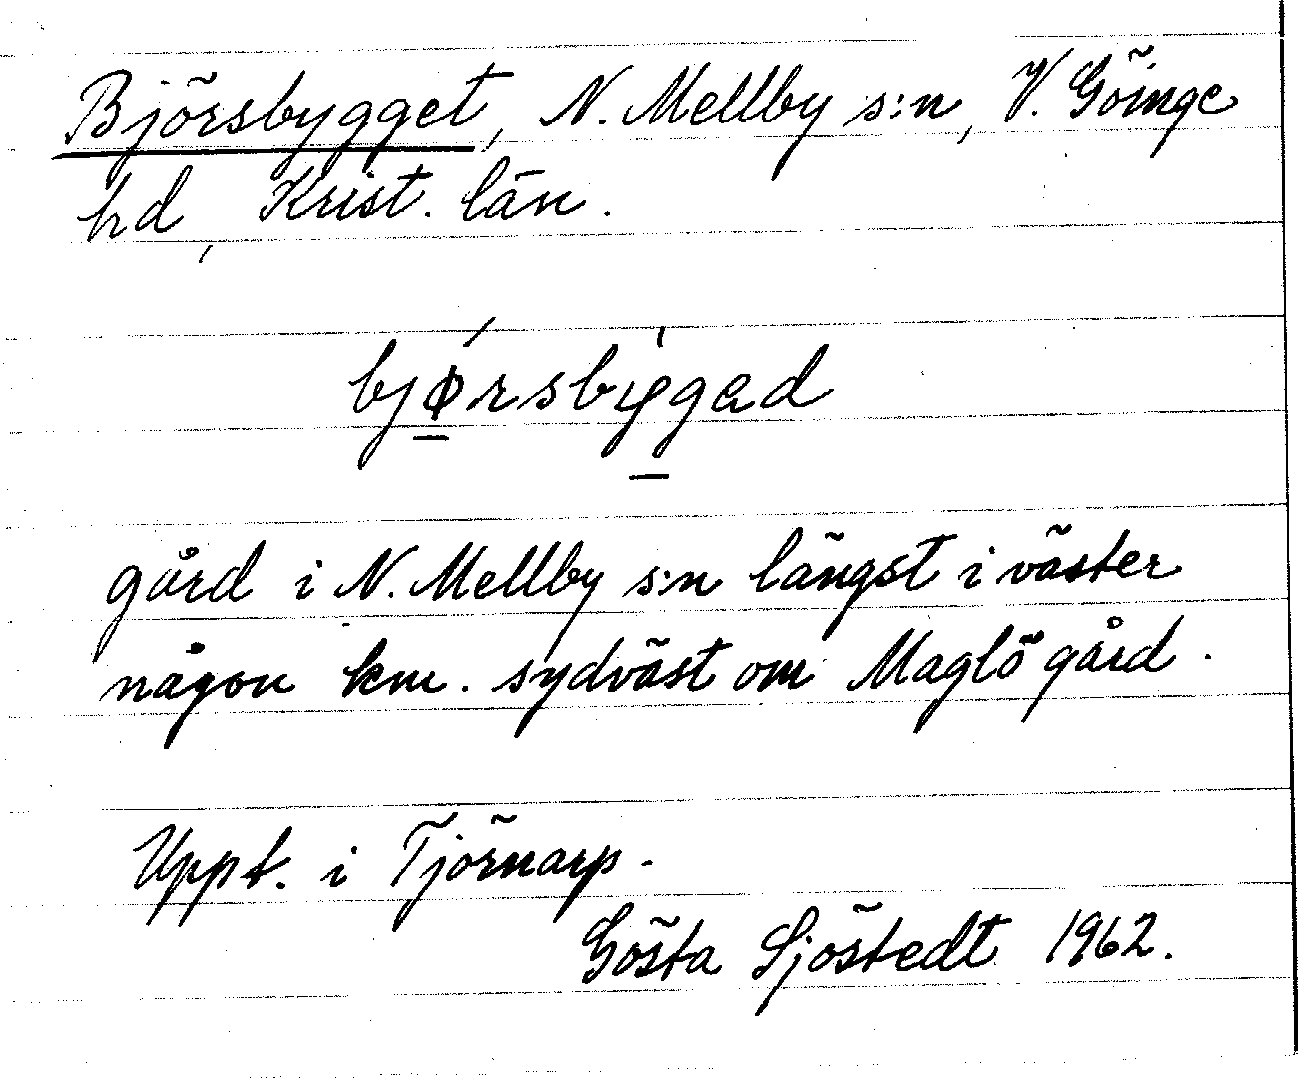 Björsbygget, N. Mellby s:n, V. Göinge
hd, Krist. län.
bjǿ̲rsbỳ̲gəd
gård i N. Mellby s:n längst i väster
någon km. sydväst om Maglö gård.
Uppt. i Tjörnarp.
Gösta Sjöstedt 1962.